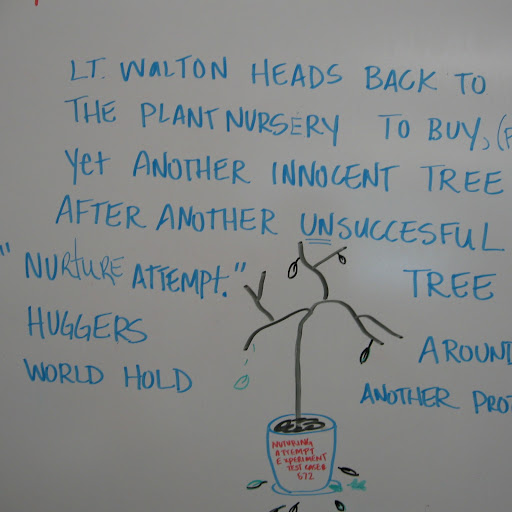 LT. WALTON HEADS BACK TO
THE PLANT NURSERY TO BUY,
YET ANOTHER INNOCENT TREE
AFTER ANOTHER UNSUCCESFUL
"NURTURE ATTEMPT." TREE
HUGGERS AROUND
WORLD HOLD ANOTHER
NUTURING
ATTEMPT
EXPERIMENT
TEST CASE#
572